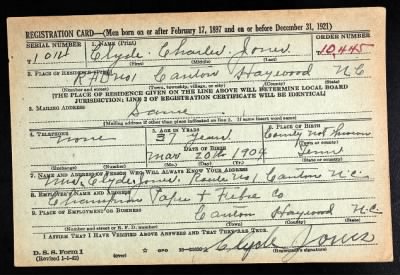 REGISTRATION CARD—(Men born on or after February 17, 1897 and on or before December 31, 1921)
SERIAL NUMBER 1. NAME (Print) ORDER NUMBER
1014 Clyde Charles Jones 10,445
(First) (Middle) (Last)
2. PLACE OF RESIDENCE (Print)
RFD No 1 Canton Haywood N.C
(Number and street) (Town, township, village, or city) (County) (State)
[THE PLACE OF RESIDENCE GIVEN ON THE LINE ABOVE WILL DETERMINE LOCAL BOARD
JURISDICTION; LINE 2 OF REGISTRATION CERTIFICATE WILL BE IDENTICAL]
3. MAILING ADDRESS
Same
[Mailing address if other than place indicated on line 2. If same insert word same]
4. TELEPHONE 5. AGE IN YEARS 6. PLACE OF BIRTH
none 37 years County Not Known
DATE OF BIRTH
Mar 20th 1904 Tenn
(Exchange) (Number) (Mo.) (Day) (Yr.) (State or country)
7. NAME AND ADDRESS OF PERSON WHO WILL ALWAYS KNOW YOUR ADDRESS
Mrs. Clyde Jones. Route No 1 Canton N.C.
8. EMPLOYER'S NAME AND ADDRESS
Champion Paper + Fibre Co
9. PLACE OF EMPLOYMENT OR BUSINESS
Canton Haywood N.C.
(Number and street or R. F. D. number) (Town) (County) (State)
I AFFIRM THAT I HAVE VERIFIED ABOVE ANSWERS AND THAT THEY ARE TRUE.
D. S. S. Form 1
(Revised 1-1-42) GPO Clyde Jones
(Registrant's signature)